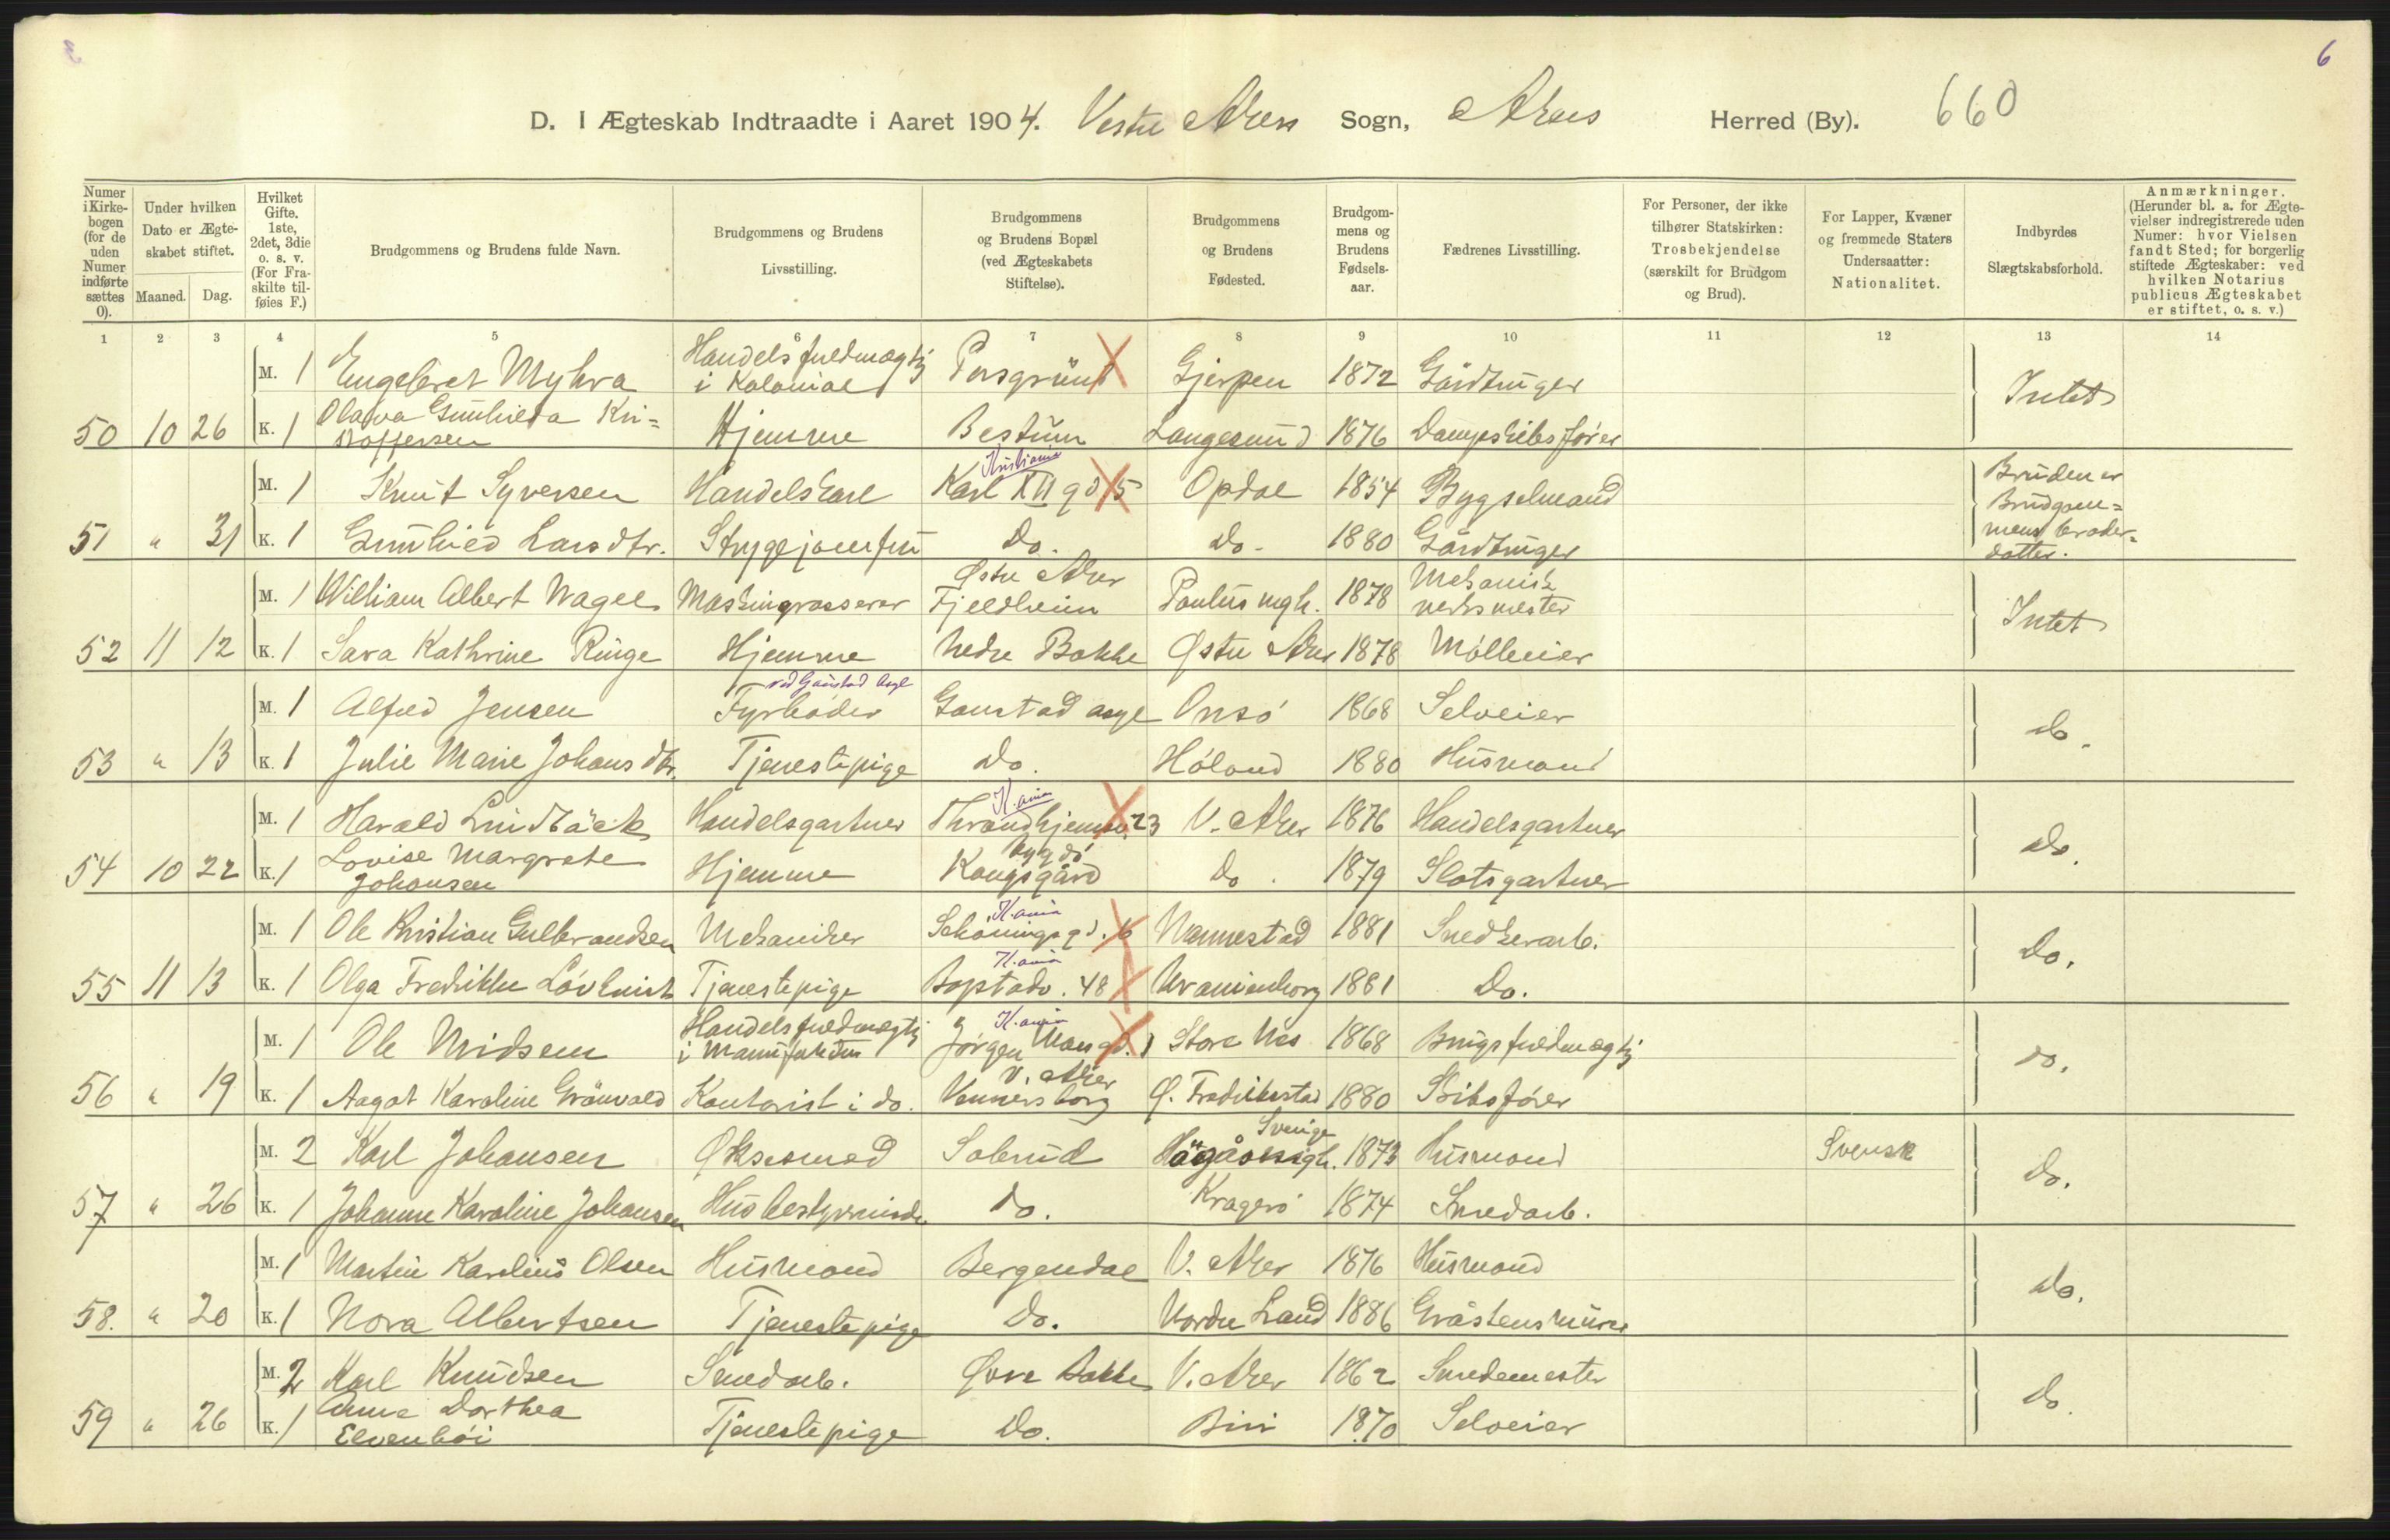 6
D. I Ægteskab Indtraadte i Aaret 1904. Vestre Aker Sogn, Akers Herred (By). 660
Numer i Kirkebogen (for de uden Numer indførte sættes 0). Under hvilken Dato er Ægteskabet stiftet. Maaned. Dag. Hvilket Gifte. 1ste, 2det, 3die o. s. v. (For Fraskilte tilføies F.) Brudgommens og Brudens fulde Navn. Brudgommens og Brudens Livsstilling. Brudgommens og Brudens Bopæl (ved Ægteskabets Stiftelse). Brudgommens og Brudens Fødested. Brudgommens og Brudens Fødselsaar. Fædrenes Livsstilling. For Personer, der ikke tilhører Statskirken: Trosbekjendelse (særskilt for Brudgom og Brud). For Lapper, Kvæner og fremmede Staters Undersaatter: Nationalitet. Indbyrdes Slægtskabsforhold. Anmærkninger. (Herunder bl. a. for Ægtevielser indregistrerede uden Numer: hvor Vielsen fandt Sted; for borgerlig stiftede Ægteskaber: ved hvilken Notarius publicus Ægteskabet er stiftet, o. s. v.)
1 2 3 4 5 6 7 8 9 10 11 12 13 14
M. 1 Engebret Myhra Handelsfuldmægtig i Kolonial Porsgrund Gjerpen 1872 Gårdbruger Intet
50 10 26 K. 1 Olava Gunhilda Kristoffersen Hjemme Bestum Langesund 1876 Dampskibsfører
M. 1 Knut Syversen Handelskarl Kristiania Karl XII gd 15 Opdal 1854 Bygselmand Bruden er Brudgommens broderdatter.
51 " 31 K. 1 Gunhild Larsdtr. Strygejomfru Do. Do. 1880 Gårdbruger
M. 1 William Albert Nagel Maskinpasserer Østre Aker Fjeldheim Paulus mgh. 1878 Mekanisk verksmester Intet
52 11 12 K. 1 Sara Kathrine Ringe Hjemme Nedre Bakke Østre Aker 1878 Mølleeier
M. 1 Alfred Jensen Fyrbøder ved Gaustad Asyl Gaustad asyl Onsö 1868 Selveier do.
53 " 13 K. 1 Julie Marie Johansdtr. Tjenestepige Do. Höland 1880 Husmand
M. 1 Harald Lindbäck Handelsgartner K.ania Throndhjemsv. 23 V. Aker 1876 Handelsgartner do.
54 10 22 K. 1 Lovise Margrete Johansen Hjemme Bygdö Kongsgård Do. 1879 Slotsgartner
M. 1 Ole Kristian Gulbrandsen Mekaniker K.ania Schöningsgd. 6 Nannestad 1881 Snedkerarb. Do.
55 11 13 K. 1 Olga Fredrikke Lövkvist Tjenestepige K.ania Bogstadv. 48 Uranienborg 1881 Do.
M. 1 Ole Handelsfuldmægtig i Manufaktur K.ania Jørgen Moes gd. 1 Store 1868 Brugsfuldmægtig do.
56 " 19 K. 1 Aagot Karoline Grönvold Kontorist i do. V. Aker Vennersborg Ø. Fredrikstad 1880 Skibsfører
M. 2 Karl Johansen Øksesmed Solerud Sverige 1873 Husmand Svensk Do.
57 " 26 K. 1 Johanne Karoline Johansen Husbestyrerinde Do. Kragerö 1874 Smedarb.
M. 1 Martin Karelius Olsen Husmand Bergendal V. Aker 1876 Husmand do.
58. " 20 K. 1 Nora Albertsen Tjenestepige Do. Nordre Land 1886 Gråstensmurer
M. 2 Karl Knudsen Smedarb. Øvre Bakke V. Aker 1862 Smedemester do.
59 " 26 K. 1 Anne Dorthea Elvenhöi Tjenestepige Do. Biri 1870 Selveier